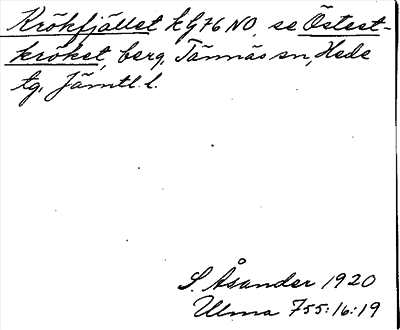 Krökfjället kG76 NO, se Östest-
kröket, berg, Tännäs sn, Hede
tg, Jämtl. l.
S. Åsander 1920
Ulma 755:16:19